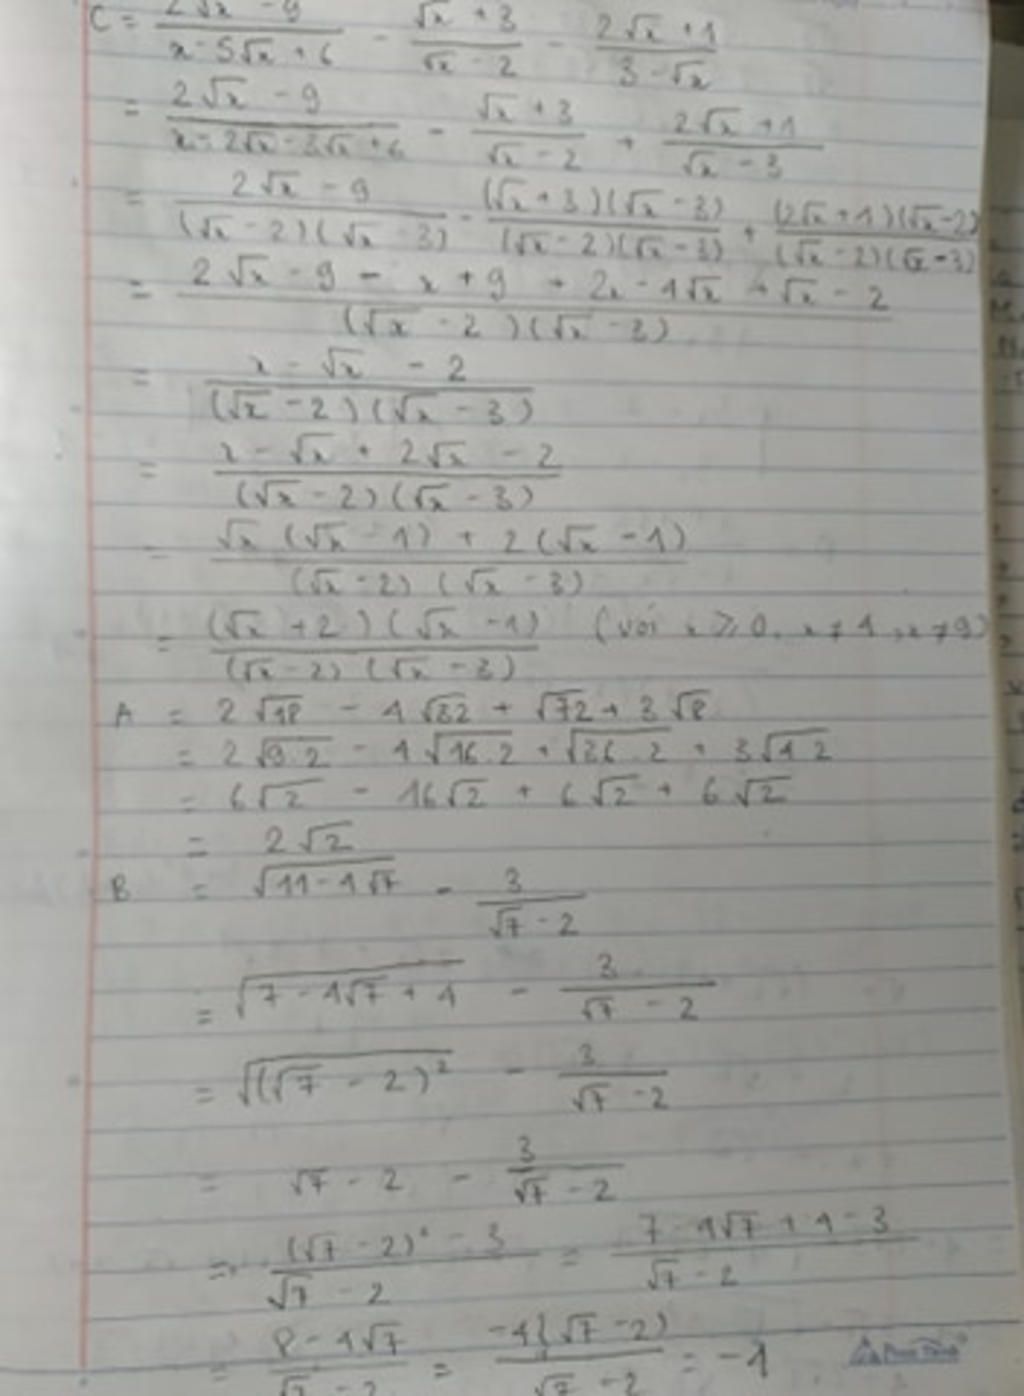 C = (2√x - 9)/(x - 5√x + 6) - (√x + 3)/(√x - 2) - (2√x + 1)/(3 - √x)
= (2√x - 9)/(x - 2√x - 3√x + 6) - (√x + 3)/(√x - 2) + (2√x + 1)/(√x - 3)
= (2√x - 9)/((√x - 2)(√x - 3)) - ((√x + 3)(√x - 3))/((√x - 2)(√x - 3)) + ((2√x + 1)(√x - 2))/((√x - 2)(√x - 3))
= (2√x - 9 - x + 9 + 2x - 4√x + √x - 2)/((√x - 2)(√x - 3))
= (x - √x - 2)/((√x - 2)(√x - 3))
= (x - √x + 2√x - 2)/((√x - 2)(√x - 3))
= (√x(√x - 1) + 2(√x - 1))/((√x - 2)(√x - 3))
= ((√x + 2)(√x - 1))/((√x - 2)(√x - 3)) (với x ≥ 0, x ≠ 4, x ≠ 9)
A = 2√18 - 4√32 + √72 + 3√8
= 2√9.2 - 4√16.2 + √36.2 + 3√4.2
= 6√2 - 16√2 + 6√2 + 6√2
= 2√2
B = √(11 - 4√7) - 3/(√7 - 2)
= √(7 - 4√7 + 4) - 3/(√7 - 2)
= √((√7 - 2)²) - 3/(√7 - 2)
= √7 - 2 - 3/(√7 - 2)
= ((√7 - 2)² - 3)/(√7 - 2) = (7 - 4√7 + 4 - 3)/(√7 - 2)
= (8 - 4√7)/(√7 - 2) = (-4(√7 - 2))/(√7 - 2) = -4